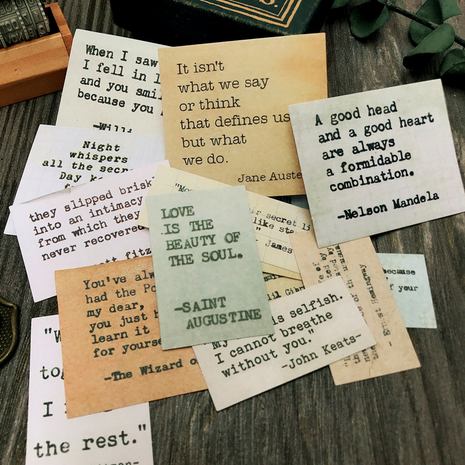 When I saw
I fell in l
and you smil
because you
It isn't
what we say
or think
that defines us
but what
we do.
Jane Auste
A good head
and a good heart
are always
a formidable
combination.
-Nelson Mandela
Night
whispers
all the secre
Day
they slipped brisk
into an intimacy
from which they
never recovere
fitz
LOVE
IS THE
BEAUTY OF
THE SOUL.
-SAINT
AUGUSTINE
secret li
like sto
James
because
of your
You've alwa
had the Po
my dear,
you just h
learn it
for yourse
-The Wizard o
is selfish.
I cannot breathe
without you."
-John Keats-
"W
tog
I
the rest."